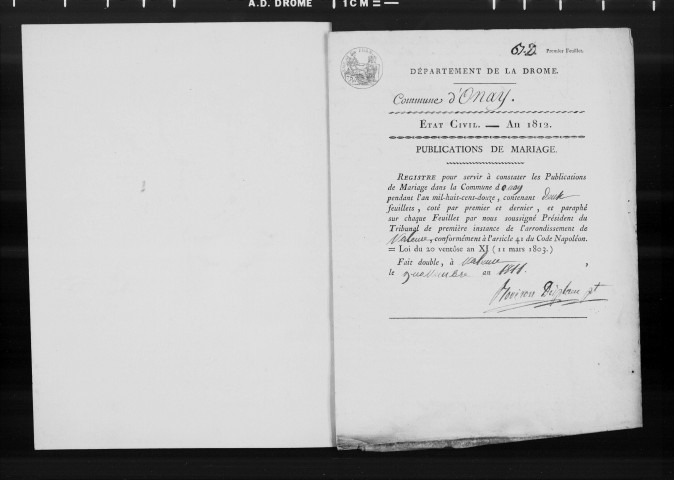 A.D. DROME 1CM
Premier Feuillet.
DÉPARTEMENT DE LA DROME.
Commune d'Onay.
ETAT CIVIL. — AN 1812.
PUBLICATIONS DE MARIAGE.
REGISTRE pour servir à constater les Publications
de Mariage dans la Commune d'Onay
pendant l'an mil-huit-cent-douze, contenant deux
feuillets, coté par premier et dernier, et paraphé
sur chaque Feuillet par nous soussigné Président du
Tribunal de première instance de l'arrondissement de
Valence, conformément à l'article 41 du Code Napoléon.
= Loi du 20 ventôse an XI (11 mars 1803.)
Fait double, à Valence
le an 1811.